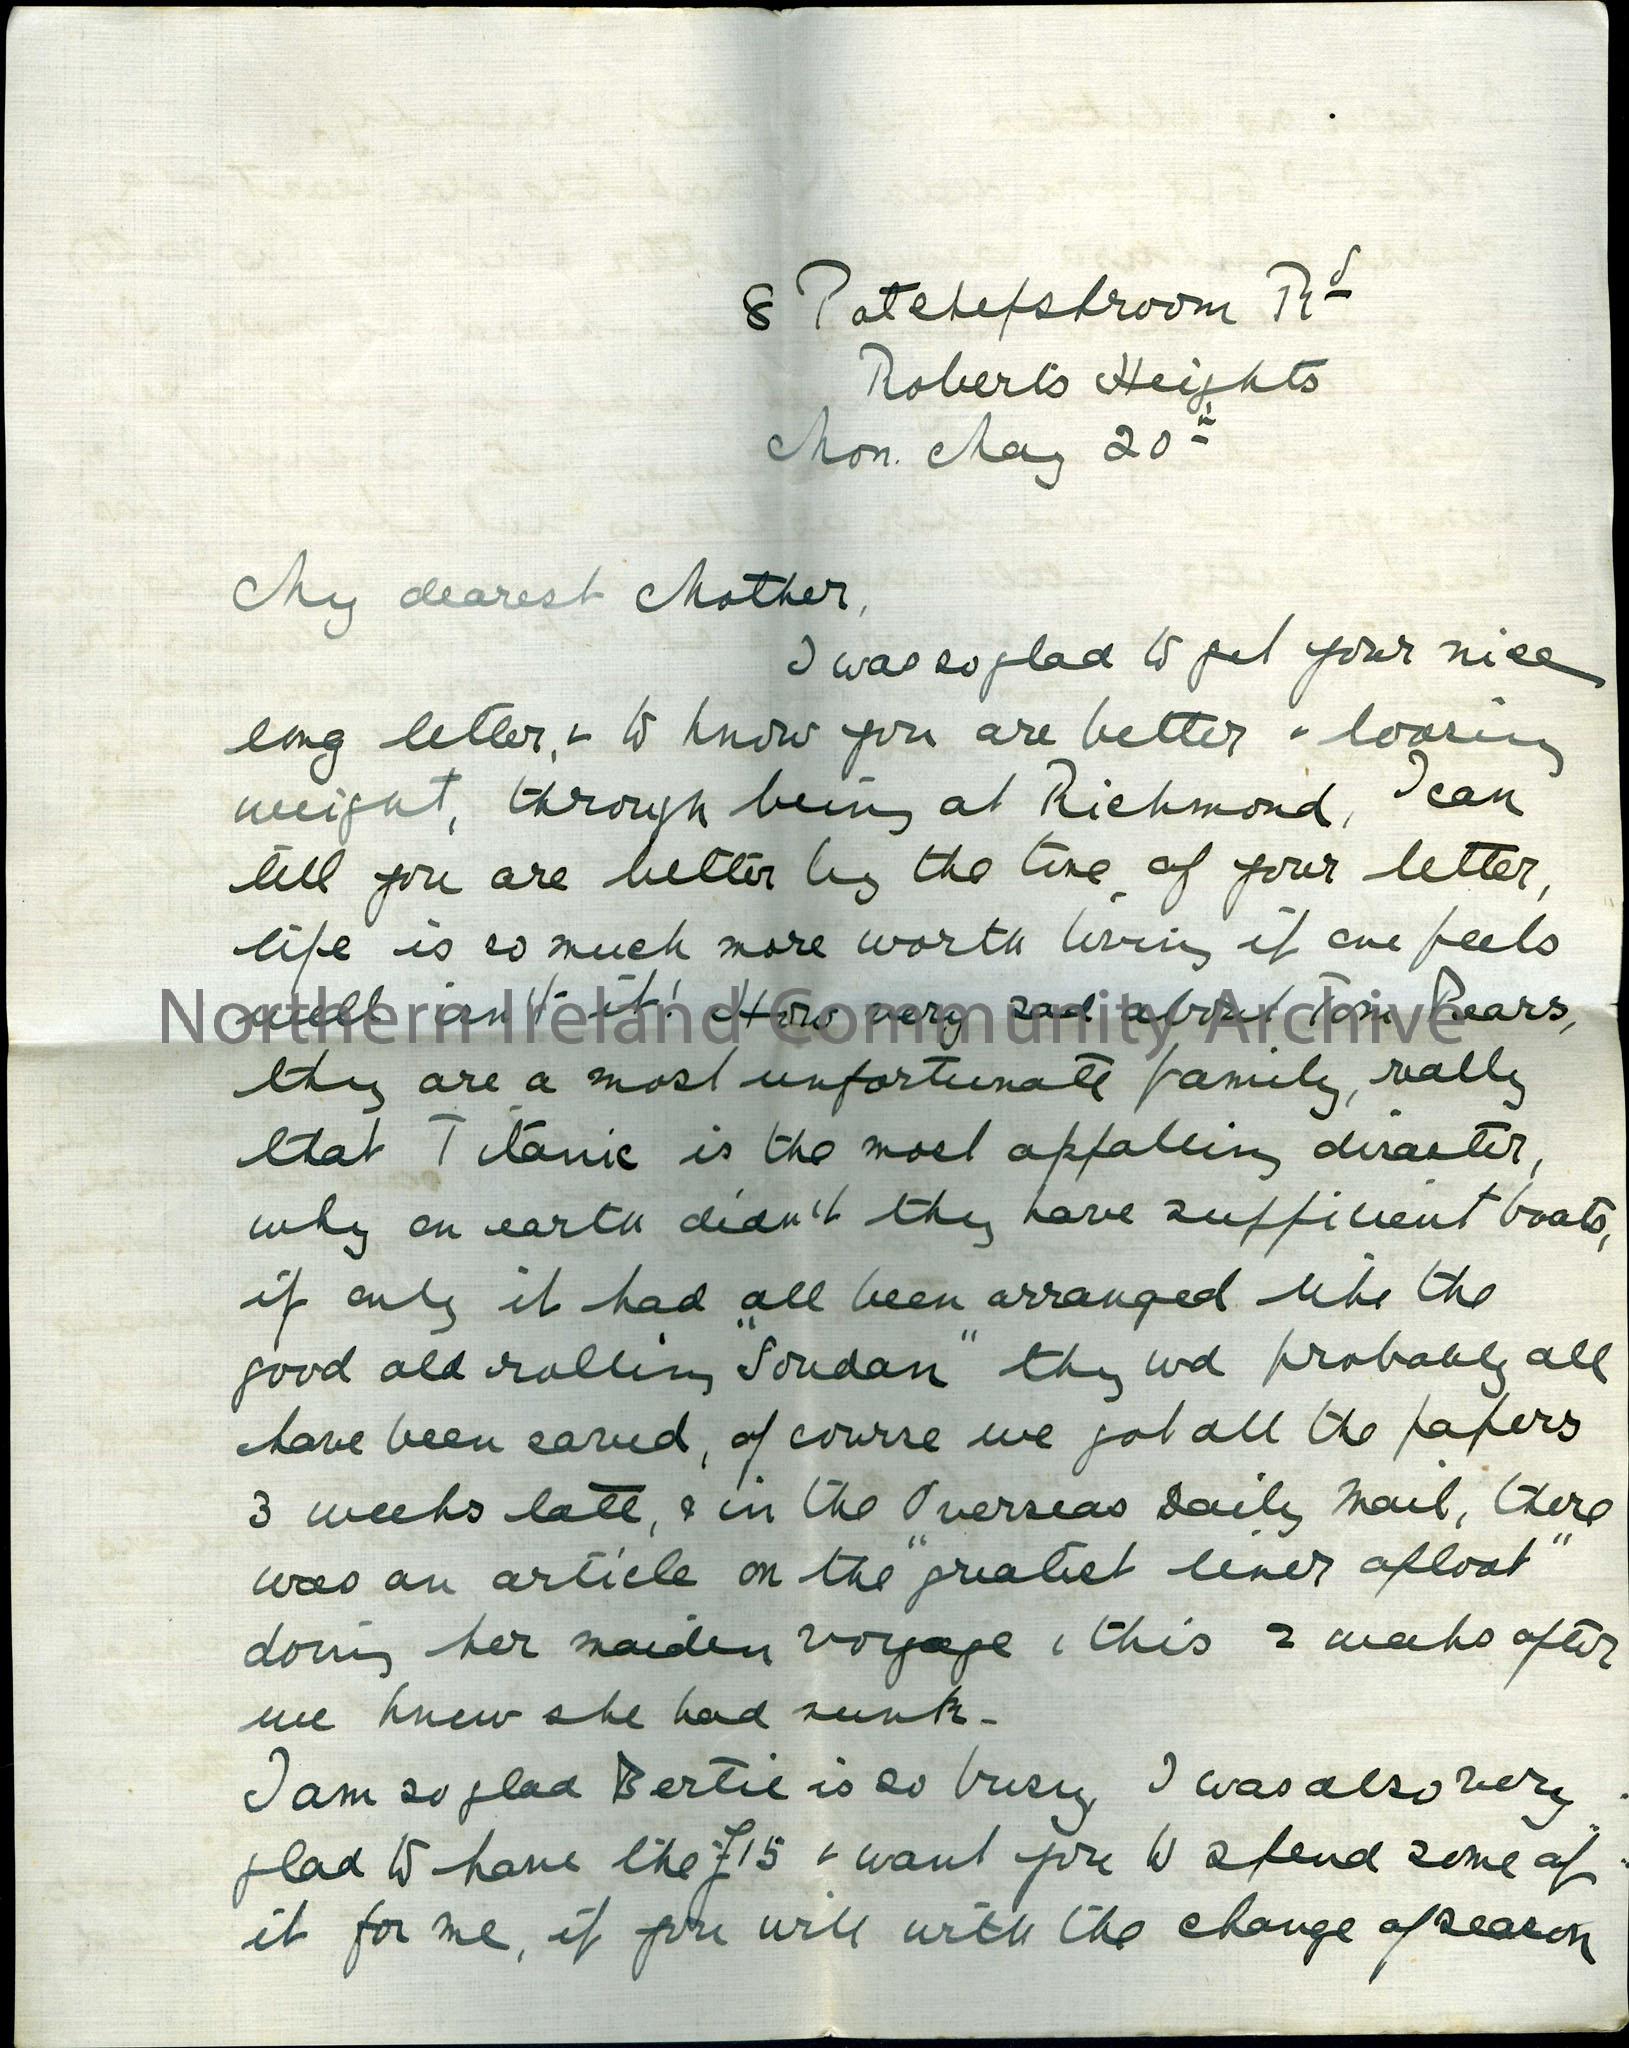 8 Potchefstroom Rd
Roberts Heights
Mon. May 20th
My dearest Mother,
I was so glad to get your nice
long letter, & to know you are better & loosing
weight, through being at Richmond, I can
tell you are better by the tone of your letter,
life is so much more worth living if one feels
well isn't it! How very sad about Tom Pears,
Northern Ireland Community Archive
they are a most unfortunate family, really
that Titanic is the most appalling disaster,
why on earth didn't they have sufficient boats,
if only it had all been arranged like the
good old rolling "Soudan" they wd probably all
have been saved, of course we got all the papers
3 weeks late, & in the Overseas Daily Mail, there
was an article on the "greatest liner afloat"
doing her maiden voyage, this 2 weeks after
we knew she had sunk -
I am so glad Bertie is so busy, I was also very
glad to have the £15 & want you to spend some of
it for me, if you will with the change of season